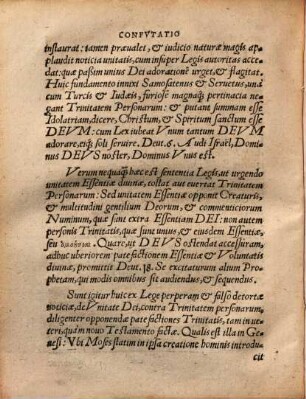 CONFVTATIO
instaurat: tamen præualet, & iudicio naturæ magis ap-
plaudit noticia unitatis, cum insuper Legis autoritas acce-
dat: quæ passim unius Dei adorationẽ urget, & flagitat.
Huic fundamento innixi Samosatenus & Seruetus, unà
cum Turcis & Iudæis, furiosè magnaq́; pertinacia ne-
gant Trinitatem Personarum: & putant summam esse
Idolatriam, dicere, Christum, & Spiritum sanctum esse
DEVM: cum Lex iubeat Vnum tantum DEVM
adorare, eiq́; soli seruire. Deut. 6. Audi Israël, Domi-
nus DEVS noster, Dominus Vnus est.
Verùm nequaq̃ hæc est sententia Legis, ut urgendo
unitatem Essentiæ diuinæ, tollat aut euertat Trinitatem
Personarum: Sed unitatem Essentiæ opponit Creaturis,
& multitudini gentilium Deorum, & commenticiorum
Numinum, quæ sunt extra Essentiam DEI: non autem
personis Trinitatis, quæ sunt unius, & eiusdem Essentiæ,
seu ὁμοούσιαι. Quare, ut DEVS ostendat accessuram,
adhuc uberiorem patefactionem Essentiæ & Voluntatis
diuinæ, promittit Deut. 18. Se excitaturum alium Pro-
phetam, qui modis omnibus sit audiendus, & sequendus.
Sunt igitur huic ex Lege perperam & falsò detortæ
noticiæ, de Vnitate Dei, contra Trinitatem personarum,
diligenter opponendæ patefactiones Trinitatis, tam in ue-
teri, quàm nouo Testamento factæ. Qualis est illa in Ge-
nesi: Vbi Moses statim in ipsa creatione hominis introdu-
cit